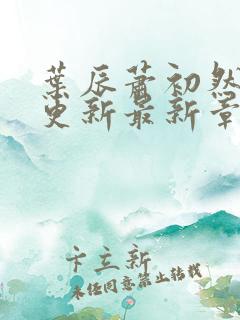 葉辰蕭初然
更新最新章
卡立新
未经同意禁止转载